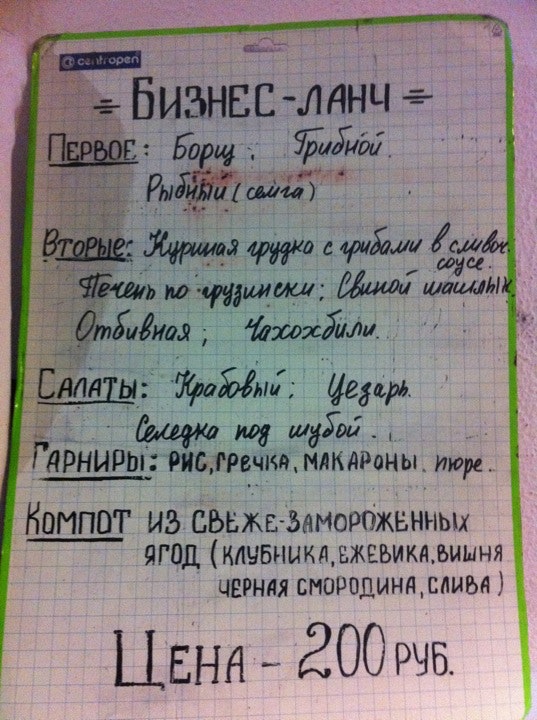 centropen
= БИЗНЕС-ЛАНЧ =
ПЕРВОЕ: Борщ; Грибной.
Рыбный (семга)
Вторые: Куриная грудка с грибами в сливоч.
соусе.
Печень по-грузински; Свиной шашлык
Отбивная; Чахохбили.
САЛАТЫ: Крабовый; Цезарь.
Селедка под шубой.
ГАРНИРЫ: РИС, ГРЕЧКА, МАКАРОНЫ, пюре.
КОМПОТ ИЗ СВЕЖЕ-ЗАМОРОЖЕННЫХ
ЯГОД (КЛУБНИКА, ЕЖЕВИКА, ВИШНЯ
ЧЕРНАЯ СМОРОДИНА, СЛИВА)
ЦЕНА - 200 РУБ.